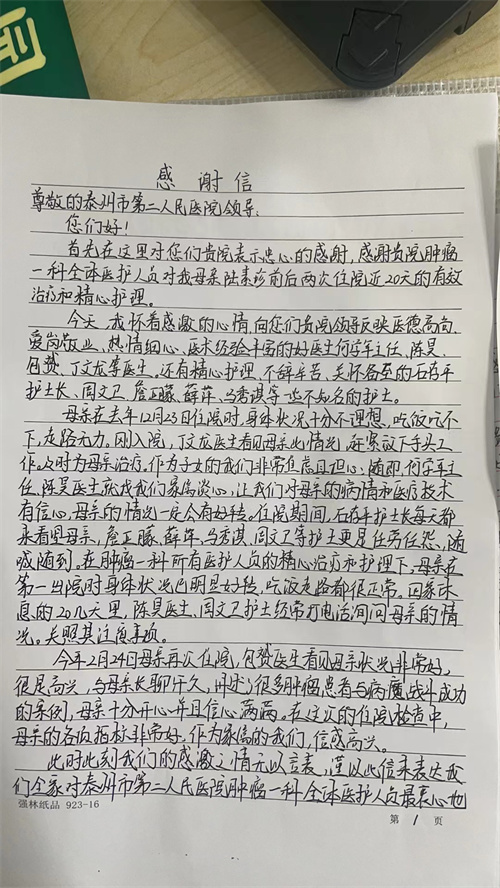 感谢信
尊敬的泰州市第二人民医院领导:
您们好!
首先在这里对您们贵院表示忠心的感谢,感谢贵院肿瘤
一科全体医护人员对我母亲陆素珍前后两次住院近20天的有效
治疗和精心护理。
今天,我怀着感激的心情,向您们贵院领导反映医德高尚、
爱岗敬业、热情细心、医术经验丰富的好医生何学军主任、陈昊、
包赟、丁文龙等医生,还有精心护理、不辞辛苦、关怀备至的石存平
护士长、周文卫、詹正藤、薛萍、马秀琪等一些不知名的护士。
母亲在去年12月23日住院时,身体状况十分不理想,吃饭吃不
下,走路无力。刚入院,丁文龙医生看见母亲此情况,赶紧放下手头工
作。及时为母亲治疗。作为子女的我们非常焦虑且担心,随即,何学军主
任、陈昊医生就找我们家属谈心,让我们对母亲的病情和医疗技术
有信心,母亲的情况一定会有好转。住院期间,石存平护士长每天都
来看望母亲,詹正藤、薛萍、马秀琪、周文卫等护士更是任劳任怨,随
喊随到。在肿瘤一科所有医护人员的精心治疗和护理下,母亲在
第一出院时身体状况已明显好转,吃饭走路都很正常。回家休
息的20几天里,陈昊医生、周文卫护士经常打电话询问母亲的情
况。关照其注意事项。
今年2月24日母亲再次住院,包赟医生看见母亲状况非常好,
很是高兴,与母亲长聊许久,讲述了很多肿瘤患者与病魔战斗成功
的案例,母亲十分开心并且信心满满。在这次的住院检查中,
母亲的各项指标非常好,作为家属的我们,倍感高兴。
此时此刻我们的感激之情无以言表,谨以此信来表达我
们全家对泰州市第二人民医院肿瘤一科全体医护人员最衷心地
强林纸品 923-16
第 1 页